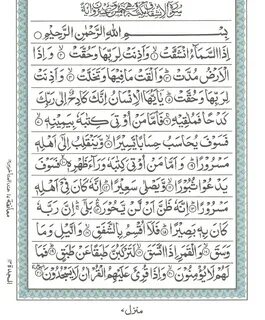 بِسْمِ اللهِ الرَّحْمٰنِ الرَّحِيْمِ
اِذَا السَّمَآءُ انْشَقَّتْ ۝ وَاَذِنَتْ لِرَبِّهَا وَحُقَّتْ ۝ وَاِذَا
الْاَرْضُ مُدَّتْ ۝ وَاَلْقَتْ مَا فِيْهَا وَتَخَلَّتْ ۝ وَاَذِنَتْ
لِرَبِّهَا وَحُقَّتْ ۝ يٰۤاَيُّهَا الْاِنْسَانُ اِنَّكَ كَادِحٌ اِلٰى رَبِّكَ
كَدْحًا فَمُلٰقِيْهِ ۝ فَاَمَّا مَنْ اُوْتِيَ كِتٰبَهٗ بِيَمِيْنِهٖ ۝
فَسَوْفَ يُحَاسَبُ حِسَابًا يَّسِيْرًا ۝ وَّيَنْقَلِبُ اِلٰٓى اَهْلِهٖ
مَسْرُوْرًا ۝ وَاَمَّا مَنْ اُوْتِيَ كِتٰبَهٗ وَرَآءَ ظَهْرِهٖ ۝ فَسَوْفَ
يَدْعُوْا ثُبُوْرًا ۝ وَّيَصْلٰى سَعِيْرًا ۝ اِنَّهٗ كَانَ فِيْٓ اَهْلِهٖ
مَسْرُوْرًا ۝ اِنَّهٗ ظَنَّ اَنْ لَّنْ يَّحُوْرَ ۝ بَلٰٓى اِنَّ رَبَّهٗ
كَانَ بِهٖ بَصِيْرًا ۝ فَلَآ اُقْسِمُ بِالشَّفَقِ ۝ وَالَّيْلِ وَمَا
وَسَقَ ۝ وَالْقَمَرِ اِذَا اتَّسَقَ ۝ لَتَرْكَبُنَّ طَبَقًا عَنْ طَبَقٍ ۝ فَمَا
لَهُمْ لَا يُؤْمِنُوْنَ ۝ وَاِذَا قُرِئَ عَلَيْهِمُ الْقُرْاٰنُ لَا يَسْجُدُوْنَ ۝
منزل ٧